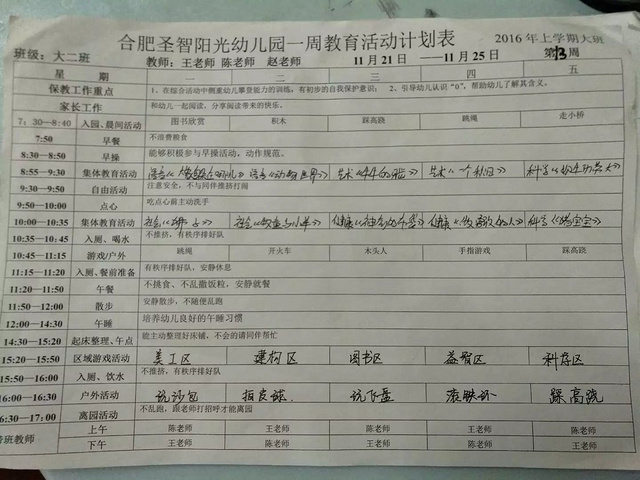 合肥圣智阳光幼儿园一周教育活动计划表 2016年上学期大班
班级：大二班 教师：王老师 陈老师 赵老师 11月21日 ——11月25日 第13周
星 期 一 二 三 四 五
保教工作重点 1、在综合活动中侧重幼儿攀登能力的训练，有初步的自我保护意识； 2、引导幼儿认识“0”，帮助幼儿了解其含义。
家长工作 和幼儿一起阅读，分享阅读带来的快乐。
7：30—8:40 入园、晨间活动 图书欣赏 积木 踩高跷 跳绳 走小桥
7:50 早餐 不浪费粮食
8:30—8:50 早操 能够积极参与早操活动，动作规范。
8:55—9:30 集体教育活动 语言 语言《动物世界》 艺术 艺术 科学
9:30—9:50 自由活动 注意安全，不与同伴推挤打闹
9:50—10:00 点心 吃点心前主动洗手
10:00—10:35 集体教育活动 社会 社会 健康 健康 科学
10:35—10:45 入厕、喝水 不推挤，有秩序排好队
10:45—11:15 游戏/户外 跳绳 开火车 木头人 手指游戏 踩高跷
11:15—11:20 入厕、餐前准备 有秩序排好队，安静休息
11:20—11:50 午餐 不挑食、不乱撒饭粒，安静就餐
11:50—12:00 散步 安静散步，不随便乱跑
12:00—14:30 午睡 培养幼儿良好的午睡习惯
14:30—15:20 起床整理、午点 能主动整理好床铺，不会的请同伴帮忙
15:20—15:50 区域游戏活动 美工区 建构区 图书区 益智区 科学区
15:50—16:00 入厕、饮水 不推挤，有秩序排好队
16:00—16:30 户外活动 玩沙包 拍皮球 玩飞盘 滚铁环 踩高跷
16:30—17:00 离园活动 不乱跑，跟老师打招呼才能离园
班教师 上午 陈老师 王老师 陈老师 王老师 陈老师
下午 王老师 陈老师 王老师 陈老师 王老师